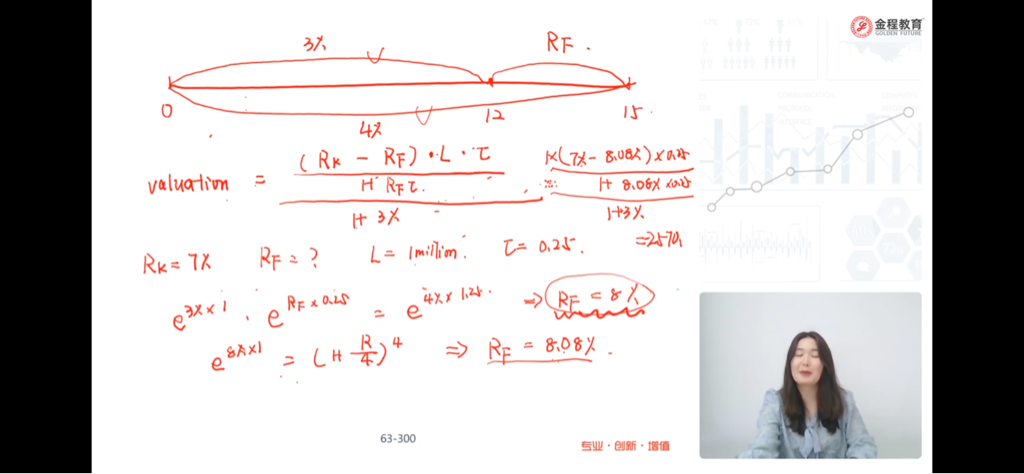 金程教育
GOLDEN FUTURE
3% RF.
0 12 15.
4%
valuation = (RK - RF)·L·τ / 1+ RFτ. / 1+ 3% 1×(7% - 8.08%)×0.25 / 1+ 8.08%×0.25 / 1+3%
=2570,
RK = 7% RF = ? L = 1 million. τ = 0.25.
e^3%×1 · e^RF×0.25 = e^4%×1.25. ⇒ RF = 8%
e^8%×1 = (1+ R/4)^4 ⇒ RF = 8.08%.
63-300
专业·创新·增值